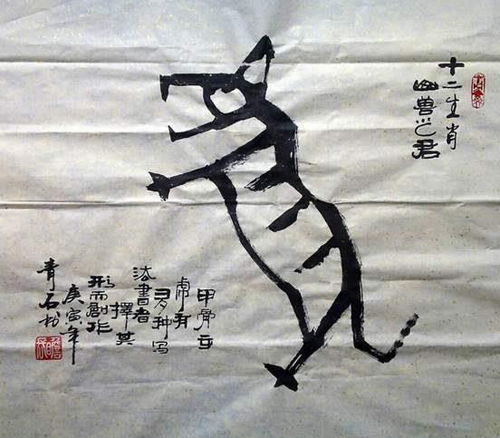 十二生肖
山兽之君
甲骨文
虎有
多种写
法書者
擇其
形而創作
庚寅年
青石